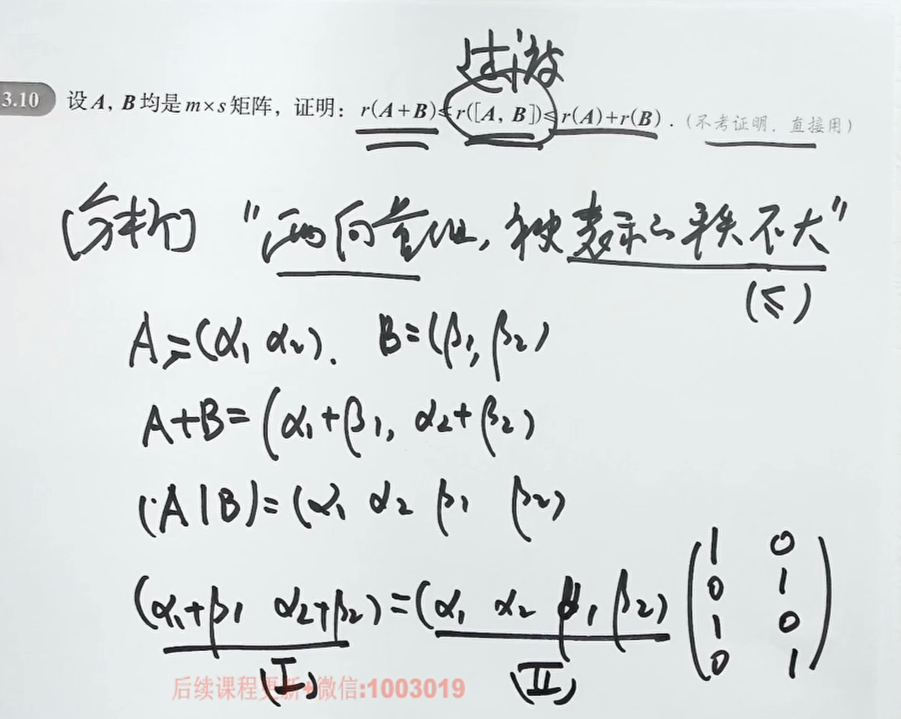 过渡
3.10 设A, B均是m×s矩阵，证明：r(A+B)≤r([A, B])≤r(A)+r(B).（不考证明，直接用）
[分析] "两向量组, 被表示的秩不大"
(≤)
A=(α₁ α₂). B=(β₁, β₂)
A+B=(α₁+β₁, α₂+β₂)
(A|B)=(α₁ α₂ β₁ β₂)
(α₁+β₁ α₂+β₂)=(α₁ α₂ β₁ β₂) (1 0
0 1
1 0
0 1)
(I) (II)
后续课程更新+微信:1003019